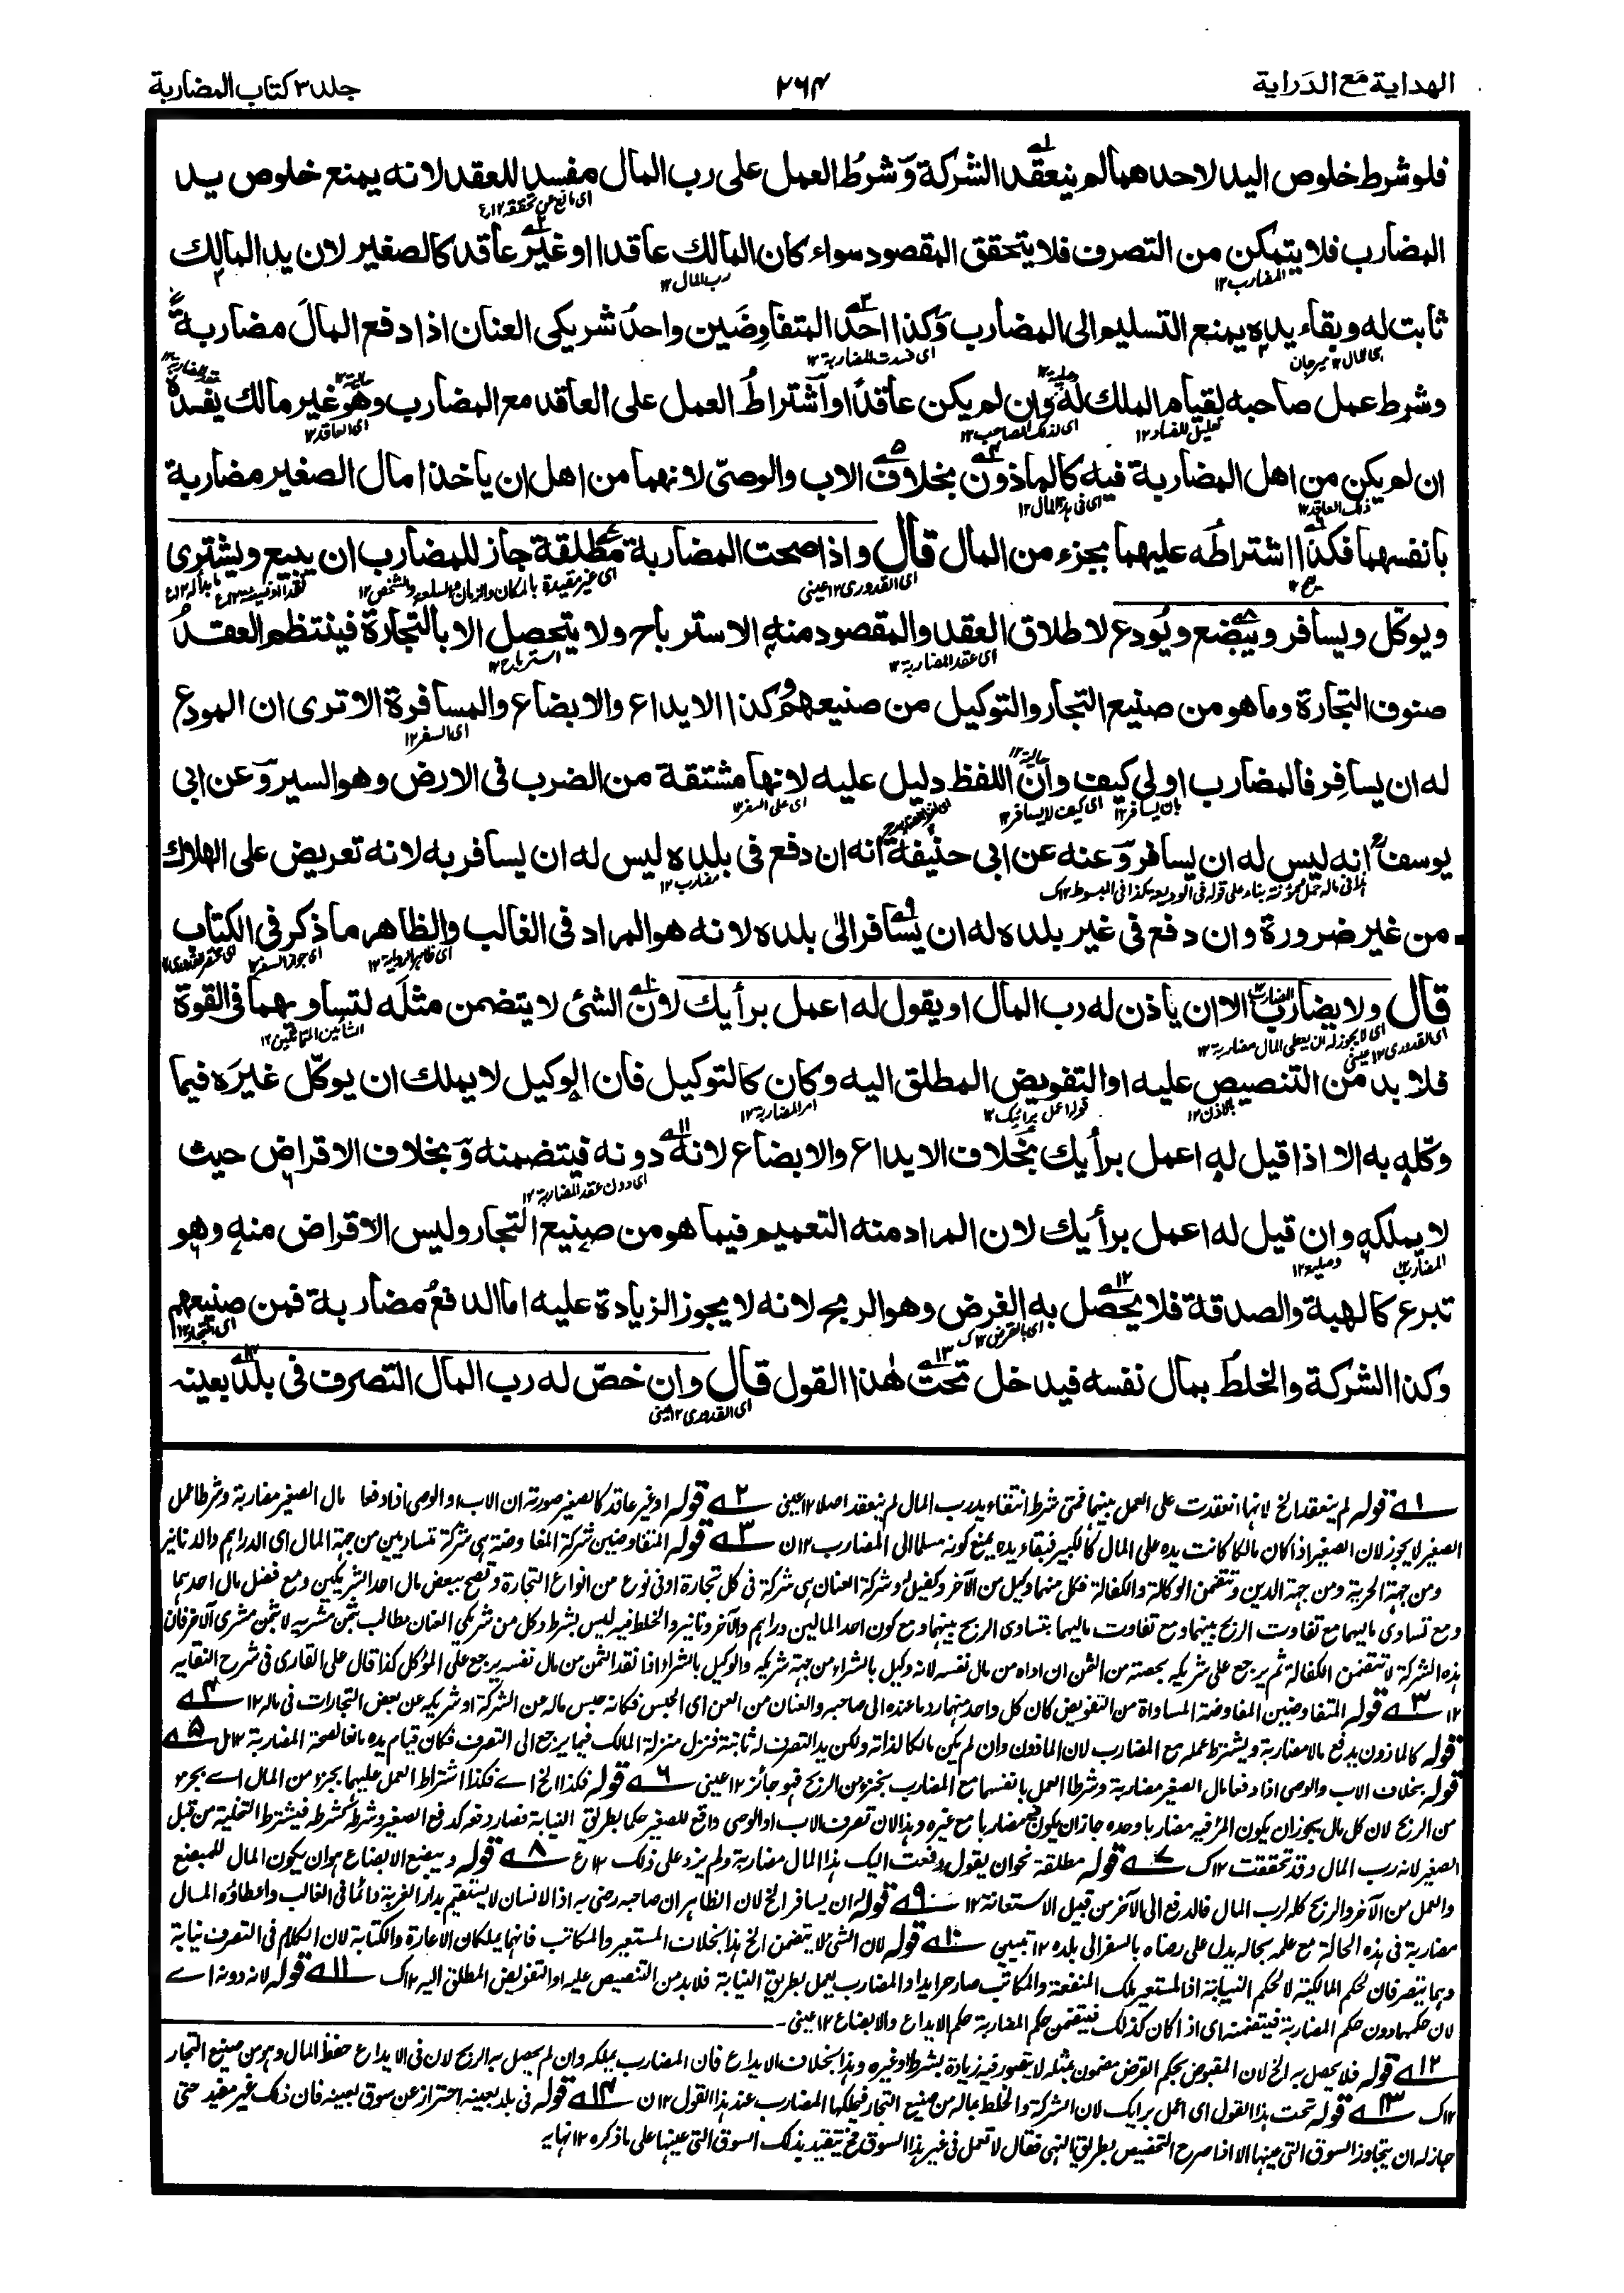 الهداية مع الدراية
٢٦٤
جلد ٣ كتاب المضاربة
فلو شرط خلوص اليد لاحدهما لم ينعقد الشركة وشرط العمل على رب المال مفسد للعقد لانه يمنع خلوص يد
المضارب فلا يتمكن من التصرف فلا يتحقق المقصود سواء كان المالك عاقدا او غير عاقد كالصغير لان يد المالك
ثابت له وبقاء يده يمنع التسليم الى المضارب وكذا احد المتفاوضين واحد شريكى العنان اذا دفع المال مضاربة
وشرط عمل صاحبه لقيام الملك له وان لم يكن عاقدا واشتراط العمل على العاقد مع المضارب وهو غير مالك يفسده
ان لم يكن من اهل المضاربة فيه كالماذون بخلاف الاب والوصى لانهما من اهل ان ياخذا مال الصغير مضاربة
بانفسهما فكذا اشتراطه عليهما بجزء من المال قال واذا صحت المضاربة مطلقة جاز للمضارب ان يبيع ويشترى
ويوكل ويسافر ويبضع ويودع لاطلاق العقد والمقصود منه الاسترباح ولا يتحصل الا بالتجارة فينتظم العقد
صنوف التجارة وما هو من صنيع التجار والتوكيل من صنيعهم وكذا الايداع والابضاع والمسافرة الا ترى ان المودع
له ان يسافر فالمضارب اولى كيف وان اللفظ دليل عليه لانها مشتقة من الضرب فى الارض وهو السير وعن ابى
يوسف انه ليس له ان يسافر وعنه عن ابى حنيفة انه ان دفع فى بلده ليس له ان يسافر به لانه تعريض على الهلاك
من غير ضرورة وان دفع فى غير بلده له ان يسافر الى بلده لانه هو المراد فى الغالب والظاهر ما ذكر فى الكتاب
قال ولا يضارب الا ان ياذن له رب المال او يقول له اعمل برأيك لان الشئ لا يتضمن مثله لتساويهما فى القوة
فلا بد من التنصيص عليه او التفويض المطلق اليه وكان كالتوكيل فان الوكيل لا يملك ان يوكل غيره فيما
وكله به الا اذا قيل له اعمل برأيك بخلاف الايداع والابضاع لانه دونه فيتضمنه وبخلاف الاقراض حيث
لا يملكه وان قيل له اعمل برأيك لان المراد منه التعميم فيما هو من صنيع التجار وليس الاقراض منه وهو
تبرع كالهبة والصدقة فلا يحصل به الغرض وهو الربح لانه لا يجوز الزيادة عليه اما الدفع مضاربة فمن صنيعهم
وكذا الشركة والخلط بمال نفسه فيدخل تحت هذا القول قال وان خص له رب المال التصرف فى بلد بعينه
١ قوله لم ينعقد الخ لانها انعقدت على العمل بينهما فمتى شرط انتفاء يد رب المال لم ينعقد اصلا ١٢ عينى ٢ قوله او غير عاقد كالصغير صورته ان الاب او الوصى اذا دفعا مال الصغير مضاربة وشرطا عمل
الصغير لا يجوز لان الصغير اذا كان مالكا كانت يده على المال كالكبير فبقاء يده يمنع كونه مسلما الى المضارب ١٢ ن ٣ قوله المتفاوضين شركة المفاوضة هى شركة متساويين من جهة المال اى الدراهم والدنانير
ومن جهة الحرية ومن جهة الدين وتتضمن الوكالة والكفالة فكل منهما وكيل من الآخر وكفيل له وشركة العنان هى شركة فى كل تجارة او فى نوع من انواع التجارة وتصح ببعض مال احد الشريكين ومع فضل مال احدهما
ومع تساوى ماليهما مع تفاوت الربح بينهما ومع تفاوت ماليهما بتساوى الربح بينهما ومع كون احد المالين دراهم والآخر دنانير والخلط فيه ليس بشرط وكل من شريكى العنان مطالب بثمن مشريه لا بثمن مشرى الآخر فان
هذه الشركة لا تتضمن الكفالة ثم يرجع على شريكه بحصته من الثمن ان اداه من مال نفسه لانه وكيل بالشراء من جهة شريكه والوكيل بالشراء اذا نقد الثمن من مال نفسه يرجع على المؤكل كذا قال على القارى فى شرح النقايه
١٢ ٣ قوله المتفاوضين المفاوضة المساواة من التفويض كان كل واحد منهما رد ما عنده الى صاحبه والعنان من العنن اى الحبس فكانه حبس ماله عن الشركة او شريكه عن بعض التجارات فى ماله ١٢ ٤
قوله كالماذون يدفع مالا مضاربة ويشترط عمله مع المضارب لان الماذون وان لم يكن مالكا لذاته ولكن يد التصرف له ثابتة فنزل منزلة المالك فيما يرجع الى التصرف فكان قيام يده مانعا لصحة المضاربة ١٢ ٥
قوله بخلاف الاب والوصى اذا دفعا مال الصغير مضاربة وشرطا العمل بانفسهما مع المضارب بجزء من الربح فهو جائز ١٢ عينى ٦ قوله فكذا الخ اے فكذا اشتراط العمل عليهما بجزء من المال اے بجزء
من الربح لان كل مال يجوز ان يكون المرء فيه مضاربا وحده جاز ان يكون فيه مضاربا مع غيره وهذا لان تصرف الاب او الوصى واقع للصغير حكما بطريق النيابة فصار دفعه كدفع الصغير وشرطه كشرطه فيشترط التخلية من قبل
الصغير لانه رب المال وقد تحققت ١٢ ك ٧ قوله مطلقة نحو ان يقول دفعت اليك هذا المال مضاربة ولم يزد على ذلك ١٢ ع ٨ قوله ويبضع الابضاع هو ان يكون المال للمبضع
والعمل من الآخر والربح كله لرب المال فالدفع الى الآخر من قبيل الاستعانة ١٢ ٩ قوله ان يسافر الخ لان الظاهر ان صاحبه رضى به اذ الانسان لا يستقيم بدار الغربة دائما فى الغالب واعطاؤه المال
مضاربة فى هذه الحالة مع علمه بحاله يدل على رضاه بالسفر الى بلده ١٢ ١٠ قوله لان الشئ لا يتضمن الخ هذا بخلاف المستعير والمكاتب فانهما يملكان الاعارة والكتابة لان الكلام فى التصرف نيابة
وهما يتصرفان بحكم المالكية لا بحكم النيابة اذ المستعير يملك المنفعة والمكاتب صار حرا يدا والمضارب يعمل بطريق النيابة فلا بد من التنصيص عليه او التفويض المطلق اليه ١٢ ك ١١ قوله لانه دونه اے
لان حكمهما دون حكم المضاربة فيتضمنه اى اذا كان كذلك فيتضمن حكم المضاربة حكم الايداع والابضاع ١٢ عينى
١٢ قوله فلا يحصل به الخ لان المقبوض بحكم القرض مضمون بمثله لا يتصور فيه زيادة بشرط او غيره وهذا بخلاف الايداع فان المضارب يملكه وان لم يحصل به الربح لان فى الايداع حفظ المال وهو من صنيع التجار
١٢ ك ١٣ قوله تحت هذا القول اى اعمل برايك لان الشركة والخلط بماله من صنيع التجار فيملكها المضارب عند هذا القول ١٢ ن ١٤ قوله فى بلد بعينه احتراز عن سوق بعينه فان ذلك غير مفيد حتى
جاز له ان يتجاوز السوق التى عينها الا اذا صرح التخصيص بطريق النهى فقال لا تعمل فى غير هذا السوق فح يتقيد بذلك السوق التى عينها على ما ذكره ١٢ نهايه